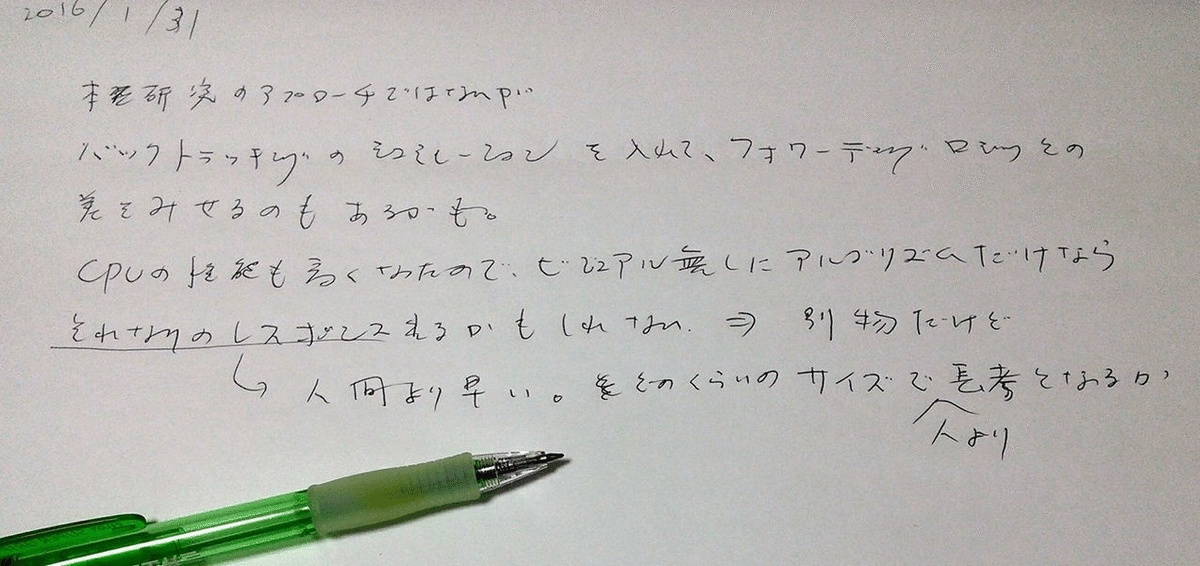 2016/1/31
本研究のアプローチではないが
バックトラッキングのシュミレーションを入れて、フォワーディングロジックとの
差をみせるのもあるかも。
CPUの性能も高くなったので、ビジュアル無しにアルゴリズムだけなら
それなりのレスポンスあるかもしれない. ⇒ 別物だけど
↳ 人間より早い。どのくらいのサイズで長考となるか
人より